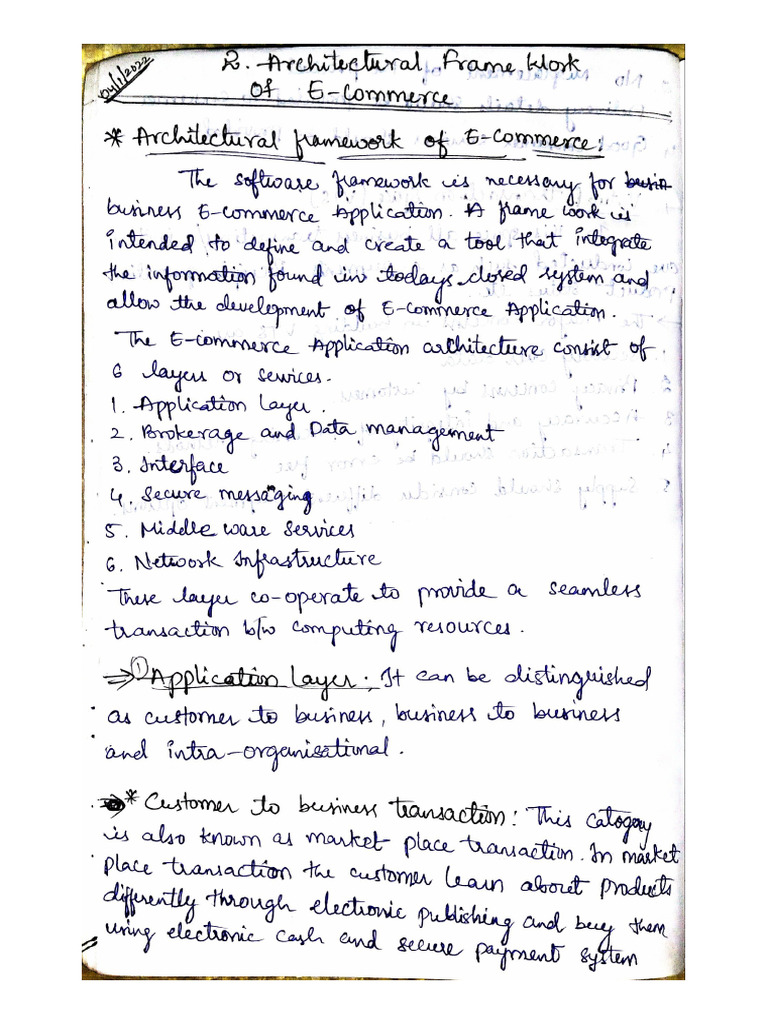 04/1/2022
2. Architectural Frame Work
of E-commerce
* Architectural framework of E-commerce:
The software framework is necessary for busin
business E-commerce Application. A frame work is
intended to define and create a tool that integrate
the information found in todays closed system and
allow the development of E-commerce Application.
The E-commerce Application architecture consist of
6 layers or services.
1. Application Layer.
2. Brokerage and Data management
3. Interface
4. Secure messaging
5. Middle ware services
6. Network Infrastructure
These layer co-operate to provide a seamless
transaction b/w computing resources.
⇒ ① Application Layer: It can be distinguished
as customer to business, business to business
and intra-organisational.
* Customer to business transaction: This catogary
is also known as market place transaction. In market
place transaction the customer learn about products
differently through electronic publishing and buy them
using electronic cash and secure payment system